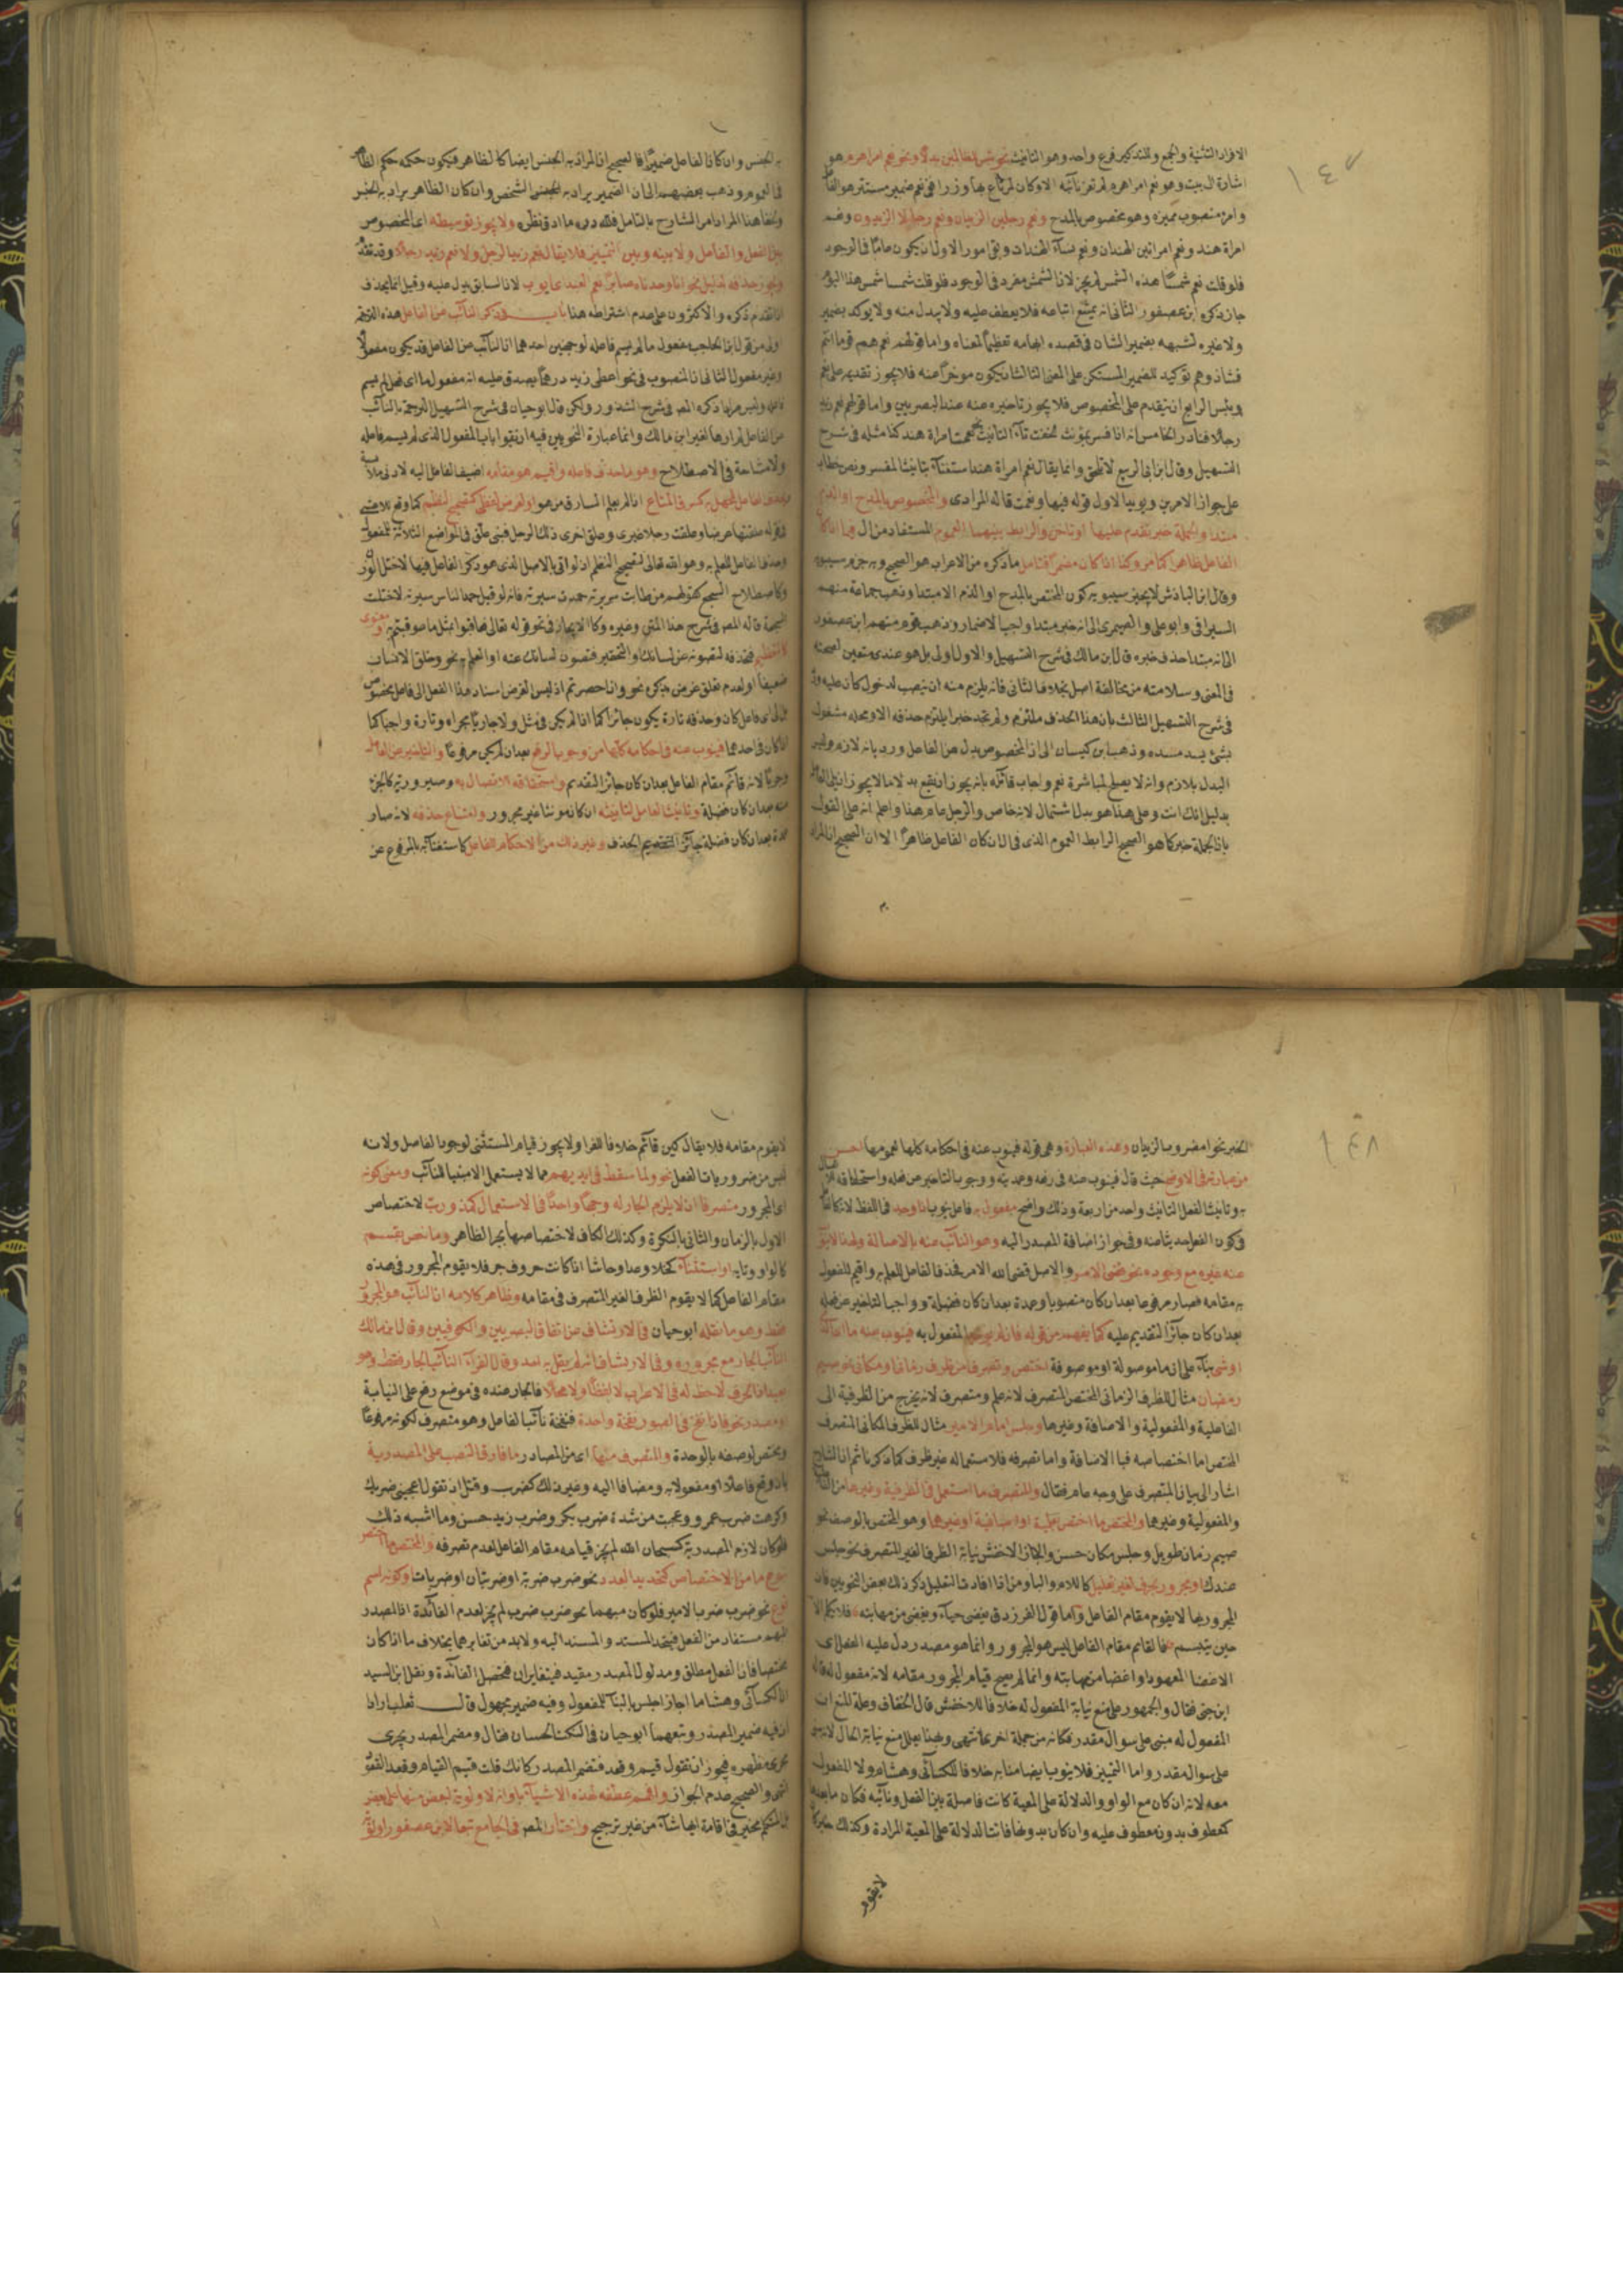 ١٤٧
الافراد التثنية والجمع وللتذكير فرع واحد وهو التانيث نحو بئس للظالمين بدلا ونحو نعم امرا هرم هو
اشارة الى بيت وهو نعم امرا هرم لم تعر نائبة الا وكان لمرتاع بها وزرا ففى نعم ضمير مستتر هو الفا
وامرا منصوب مميزه وهو مخصوص بالمدح ونعم رجلين الزيدان ونعم رجالا الزيدون ونعم
امراة هند ونعم امراتين الهندان ونعم نساء الهندات وبقى امور الاول ان يكون عاما فى الوجود
فلو قلت نعم شمسا هذه الشمس لم يجز لان الشمس مفرد فى الوجود فلو قلت شمسا شمس هذا اليوم
جاز ذكره ابن عصفور الثانى انه يمتنع اتباعه فلا يعطف عليه ولا يبدل منه ولا يوكد بضمير
ولا غيره لشبهه بضمير الشان فى قصد ابهامه تعظيما لمعناه واما قولهم نعم هم قوما انتم
فشاذ وهم توكيد للضمير المستكن على المعنى الثالث ان يكون موخرا عنه فلا يجوز تقديمه على نعم
وبئس الرابع ان يتقدم على المخصوص فلا يجوز تاخيره عنه عند البصريين واما قولهم نعم زيد
رجلا فنادر الخامس انه اذا فسر بمؤنث لحقت تاء التانيث نعمت امراة هند كذا مثله فى شرح
التسهيل وقال ابن ابى الربيع لا تلحق وانما يقال نعم امراة هند استغناء بتانيث المفسر ونص خطاب
على جواز الامرين ويويد الاول قوله فبها ونعمت قاله المرادى والمخصوص بالمدح او الذم
مبتدا والجملة خبر تقدم عليها او تاخر والرابط بينهما العموم المستفاد من ال هذا اذا كان
الفاعل ظاهرا كما مر وكذا اذا كان مضمرا فتامل ما ذكره من الاعراب هو الصحيح وبه جزم سيبويه
وقال ابن الباذش لا يجيز سيبويه كون المختص بالمدح او الذم الا مبتدا وذهب جماعة منهم
السيرافى وابو على والصيمرى الى انه خبر مبتدا واجب الاضمار وذهب قوم منهم ابن عصفور
الى انه مبتدا حذف خبره قال ابن مالك فى شرح التسهيل والاول اولى بل هو عندى متعين لصحته
فى المعنى وسلامته من مخالفة اصل بخلاف الثانى فانه يلزم منه ان ينصب لدخول كان عليه ورد
فى شرح التسهيل الثالث بان هذا الحذف ملتزم ولم نجد خبرا يلتزم حذفه الا ومحله مشغول
بشئ يسد مسده وذهب ابن كيسان الى ان المخصوص بدل من الفاعل ورد بانه لازم وليس
البدل بلازم وانه لا يصلح لمباشرة نعم واجاب قائله بانه يجوز ان يقع بدلا ما لا يجوز ان يلى العامل
بدليل انك انت وعلى هذا هو بدل اشتمال لانه خاص والرجل عام هذا واعلم انه على القول
بان الجملة خبر كما هو الصحيح الرابط العموم الذى فى ال ان كان الفاعل ظاهرا الا ان الصحيح ان المراد
به الجنس وان كان الفاعل ضميرا فالصحيح ان المراد به الجنس ايضا كالظاهر فيكون حكمه حكم الظاهر
فى العموم وذهب بعضهم الى ان الضمير يراد به الشخص وان كان الظاهر يراد به الجنس
ولخفاء هذا المراد امر الشارح بالتامل فلله دره ما ادق نظره ولا يجوز توسيطه اى المخصوص
بين الفعل والفاعل ولا بينه وبين التمييز فلا يقال نعم زيد الرجل ولا نعم زيد رجلا وقد تقدم
ويجوز حذفه لدليل نحو انا وجدناه صابرا نعم العبد اى ايوب لان السابق يدل عليه وقيل انما يحذف
اذا تقدم ذكره والاكثرون على عدم اشتراطه هنا باب فى ذكر النائب عن الفاعل هذه الترجمة
اولى من قول ابن الحاجب مفعول ما لم يسم فاعله لوجهين احدهما ان النائب عن الفاعل قد يكون مفعولا
وغير مفعول الثانى ان المنصوب فى نحو اعطى زيد درهما يصدق عليه انه مفعول ما اى فعل لم يسم
فاعله وليس مرادا ذكره المصـ فى شرح الشذور ولكن قال ابو حيان فى شرح التسهيل الترجمة بالنائب
عن الفاعل لم ارها لغير ابن مالك وانما عبارة النحويين فيه ان تقول باب المفعول الذى لم يسم فاعله
ولا مشاحة فى الاصطلاح وهو ما حذف فاعله واقيم هو مقامه اضيف الفاعل اليه لادنى ملابسة
وحذف الفاعل للجهل به كسرق المتاع اذا لم يعلم السارق من هو او لغرض لفظى كتصحيح النظم كما وقع للاعشى
فى قوله علقتها عرضا وعلقت رجلا غيرى وعلق اخرى ذلك الرجل فبنى علق فى المواضع الثلاثة للمفعول
وحذف الفاعل للعلم به وهو الله تعالى لتصحيح النظم اذ لو اتى بالاصل الذى هو ذكر الفاعل فيها لاختل الوزن
وكاصطلاح السجع كقولهم من طابت سريرته حمدت سيرته فانه لو قيل حمد الناس سيرته لاختلت
السجعة قاله المصـ فى شرح هذا المتن وغيره وكالايجاز فى نحو قوله تعالى فعاقبوا بمثل ما عوقبتم به او معنوى
كالتعظيم فتحذفه لتصونه عن لسانك والتحقير فتصون لسانك عنه او العلم به نحو وخلق الانسان
ضعيفا او لعدم تعلق غرض بذكره نحو وان احصرتم اذ ليس الغرض اسناد هذا الفعل الى فاعل مخصوص
بل الى اى فاعل كان وحذفه تارة يكون جائزا كما اذا لم يكن فى مثل ولا جاريا مجراه وتارة واجبا كما
اذا كان فى احدهما فينوب عنه فى احكامه كلها من وجوب الرفع بعد ان لم يكن مرفوعا والتاخير عن العامل
وجوبا لانه قائم مقام الفاعل بعد ان كان جائز التقديم واستحقاقه الاتصال به وصيرورته كالجزء
منه بعد ان كان فضلة وتانيث العامل لتانيثه ان كان مونثا غير مجرور وامتناع حذفه لانه صار
عمدة بعد ان كان فضلة جائز الحذف وغير ذلك من الاحكام للفاعل كاستغنائه بالمرفوع عن
١٤٨
الخبر نحو امضروب الزيدان وهذه العبارة وهى قوله فينوب عنه فى احكامه كلها لعمومها احسن
من عبارته فى الاوضح حيث قال فينوب عنه فى رفعه وعمديته ووجوب التاخير عن فعله واستحقاقه للاتصال
به وتانيث الفعل لتانيثه واحد من اربعة وذلك واضح مفعول به فاعل ينوب اذا وجد فى اللفظ لانه كالفاعل
فى كون الفعل حديثا عنه وفى جواز اضافة المصدر اليه وهو النائب عنه بالاصالة ولهذا لا ينوب
عنه غيره مع وجوده نحو وقضى الامر والاصل قضى الله الامر فحذف الفاعل للعلم به واقيم المفعول
به مقامه فصار مرفوعا بعد ان كان منصوبا وعمدة بعد ان كان فضلة وواجب التاخير عن فعله
بعد ان كان جائز التقديم عليه كما يفهم من قوله فان لم يوجد المفعول به فينوب عنه ما اى الذى
او شئ بناء على ان ما موصولة او موصوفة اختص وتصرف من ظرف زمانى او مكانى نحو صيم
رمضان مثال للظرف الزمانى المختص المتصرف لانه علم ومتصرف لانه يخرج من الظرفية الى
الفاعلية والمفعولية والاضافة وغيرها وجلس امام الامير مثال للظرف المكانى المتصرف
المختص اما اختصاصه فبالاضافة واما تصرفه فلاستعماله غير ظرف كما ذكرنا ثم ان الشارح
اشار الى بيان المتصرف على وجه عام فقال والمتصرف ما استعمل فى الظرفية وغيرها من الفاعلية
والمفعولية وغيرهما والمختص ما اختص بعلمية او اضافية او غيرهما وهو المختص بالوصف نحو
صيم زمان طويل وجلس مكان حسن واجاز الاخفش نيابة الظرف الغير المتصرف نحو جلس
عندك او مجرور بحرف لغير تعليل كاللام والباء ومن اذا افادت التعليل ذكر ذلك بعض النحويين فان
المجرور بها لا يقوم مقام الفاعل واما قول الفرزدق يغضى حياء ويغضى من مهابته فلا يكلم الا
حين يبتسم فالقائم مقام الفاعل ليس هو المجرور وانما هو مصدر دل عليه الفعل اى
الاغضا المعهود او اغضا من مهابته وانما لم يصح قيام المجرور مقامه لانه مفعول له قاله
ابن جنى فقال والجمهور على منع نيابة المفعول له خلافا للاخفش قال الخفاف وعلة المنع ان
المفعول له مبنى على سوال مقدر فكانه من جملة اخرى انتهى وبهذا يعلل منع نيابة الحال لانه مبنى
على سوال مقدر واما التمييز فلا ينوب ايضا منابه خلافا للكسائى وهشام ولا المفعول
معه لانه ان كان مع الواو والدلالة على المعية كانت فاصلة بين الفعل ونائبه فكان ما بعده
كمعطوف بدون معطوف عليه وان كان بدونها فاتت الدلالة على المعية المرادة وكذلك خبر كان
لا يقوم
لا يقوم مقامه فلا يقال كين قائم خلافا للفرا ولا يجوز قيام المستثنى لوجوب الفاصل ولانه
ليس من ضروريات الفعل نحو ولما سقط فى ايديهم مما لا يستعمل الا مبنيا للنائب ومعنى كونه
اى المجرور متصرفا ان لا يلزم الجار له وجها واحدا فى الاستعمال كمذ ورب لاختصاص
الاول بالزمان والثانى بالنكرة وكذلك الكاف لاختصاصها بجر الظاهر وما خص بقسم
كالواو وتايه او استثناء كخلا وعدا وحاشا اذا كانت حروف جر فلا يقوم المجرور فى هذه
مقام الفاعل كما لا يقوم الظرف الغير المتصرف فى مقامه وظاهر كلامه ان النائب هو المجرور
فقط وهو ما نقله ابو حيان فى الارتشاف من اتفاق البصريين والكوفيين وقال ابن مالك
النائب الجار مع مجروره وفى الارتشاف انه لم يقل به احد وقال الفراء النائب الجار فقط وهو
بعيد اذ الحرف لا حظ له فى الاعراب لا لفظا ولا محلا فالجار عنده فى موضع رفع على النيابة
ومصدر نحو فاذا نفخ فى الصور نفخة واحدة فنفخة نائب الفاعل وهو متصرف لكونه مرفوعا
ومختص لوصفه بالوحدة والمتصرف منها اى من المصادر ما فارق النصب على المصدرية
بان وقع فاعلا او مفعولا به ومضافا اليه وغير ذلك كضرب وقتل اذ تقول اعجبنى ضربك
وكرهت ضرب عمرو وعجبت من شدة ضرب بكر وضرب زيد حسن وما اشبه ذلك
فلو كان لازم المصدرية كسبحان الله لم يجز قيامه مقام الفاعل لعدم تصرفه والمختص ما اختص
بنوع ما من الاختصاص كتحديد العدد نحو ضرب ضربة او ضربتان او ضربات او كونه اسم
نوع نحو ضرب ضرب الامير فلو كان مبهما نحو ضرب ضرب لم يجز لعدم الفائدة اذ المصدر
المبهم مستفاد من الفعل فيتحد المسند والمسند اليه ولا بد من تغايرهما بخلاف ما اذا كان
مختصا فان الفعل مطلق ومدلول المصدر مقيد فيتغايران فتحصل الفائدة ونقل ابن السيد
ان الكسائى وهشاما اجازا جلس بالبناء للمفعول وفيه ضمير مجهول قال ثعلب ارادا
ان فيه ضمير المصدر وتبعهما ابو حيان فى النكت الحسان فقال ومضمر المصدر يجرى
مجرى مظهره فيجوز ان تقول قيم وقعد فتضمر المصدر كانك قلت قيم القيام وقعد القعود
انتهى والصحيح عدم الجواز وافهم عطفه هذه الاشياء باو انه لا اولوية لبعض منها على بعض
فالمتكلم مخير فى اقامة ايها شاء من غير ترجيح واختار المصـ فى الجامع تبعا لابن عصفور اولوية